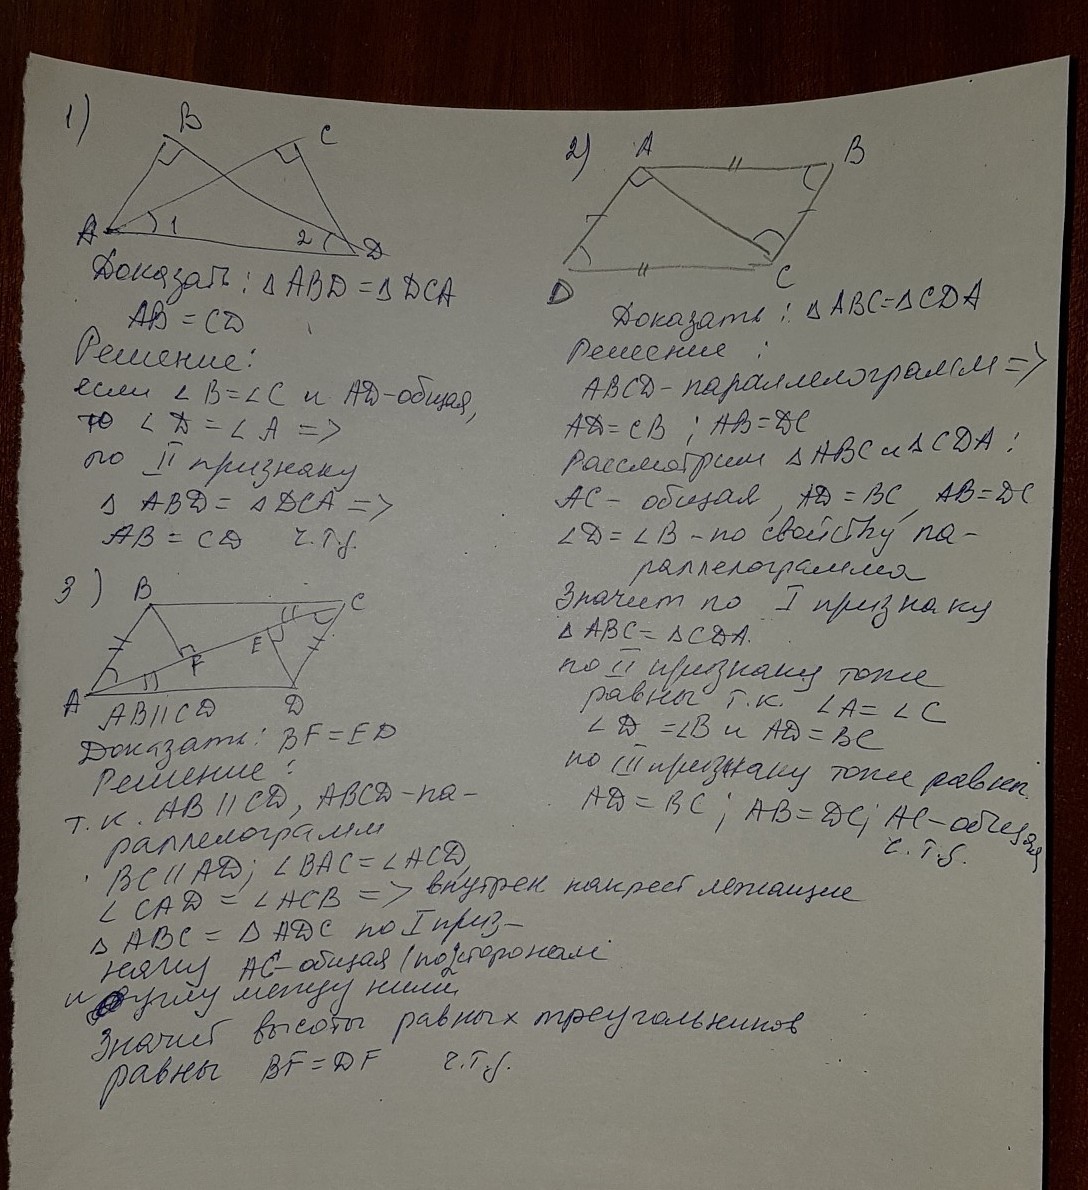 1)
B
C
A
1
2
D
Доказать: △ ABD = △ DCA
AB = CD
Решение:
если ∠ B = ∠ C и AD - общая,
то ∠ D = ∠ A =>
по II признаку
△ ABD = △ DCA =>
AB = CD ч.т.д.
2)
A
B
D
C
Доказать: △ ABC = △ CDA
Решение:
ABCD - параллелограмм =>
AD = CB ; AB = DC
Рассмотрим △ ABC и △ CDA:
AC - общая, AD = BC, AB = DC
∠D = ∠B - по свойству па-
раллелограмма
Значит по I признаку
△ ABC = △ CDA.
по II признаку тоже
равны т.к. ∠A = ∠C
∠D = ∠B и AD = BC
по III признаку тоже равны.
AD = BC; AB = DC; AC - общая
ч.т.д.
3)
B
C
E
F
A
D
AB || CD
Доказать: BF = ED
Решение:
т.к. AB || CD, ABCD - па-
раллелограмм
BC || AD; ∠BAC = ∠ACD,
∠ CAD = ∠ ACB => внутрен накрест лежащие
△ ABC = △ ADC по I приз-
наку AC - общая (по 2 сторонам
и углу между ними
Значит высоты равных треугольников
равны BF = DF ч.т.д.